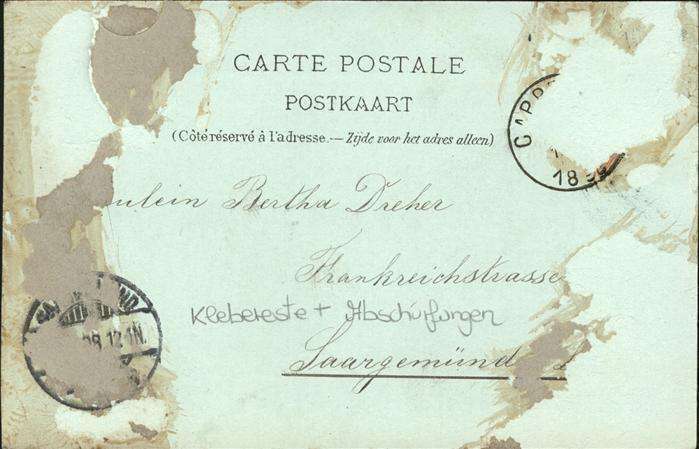 CARTE POSTALE
POSTKAART
(Côté réservé à l'adresse.— Zijde voor het adres alleen)
ulein Bertha Dreher
Frankreichstrasse
Klebereste + Abschürfungen
Saargemünd
18